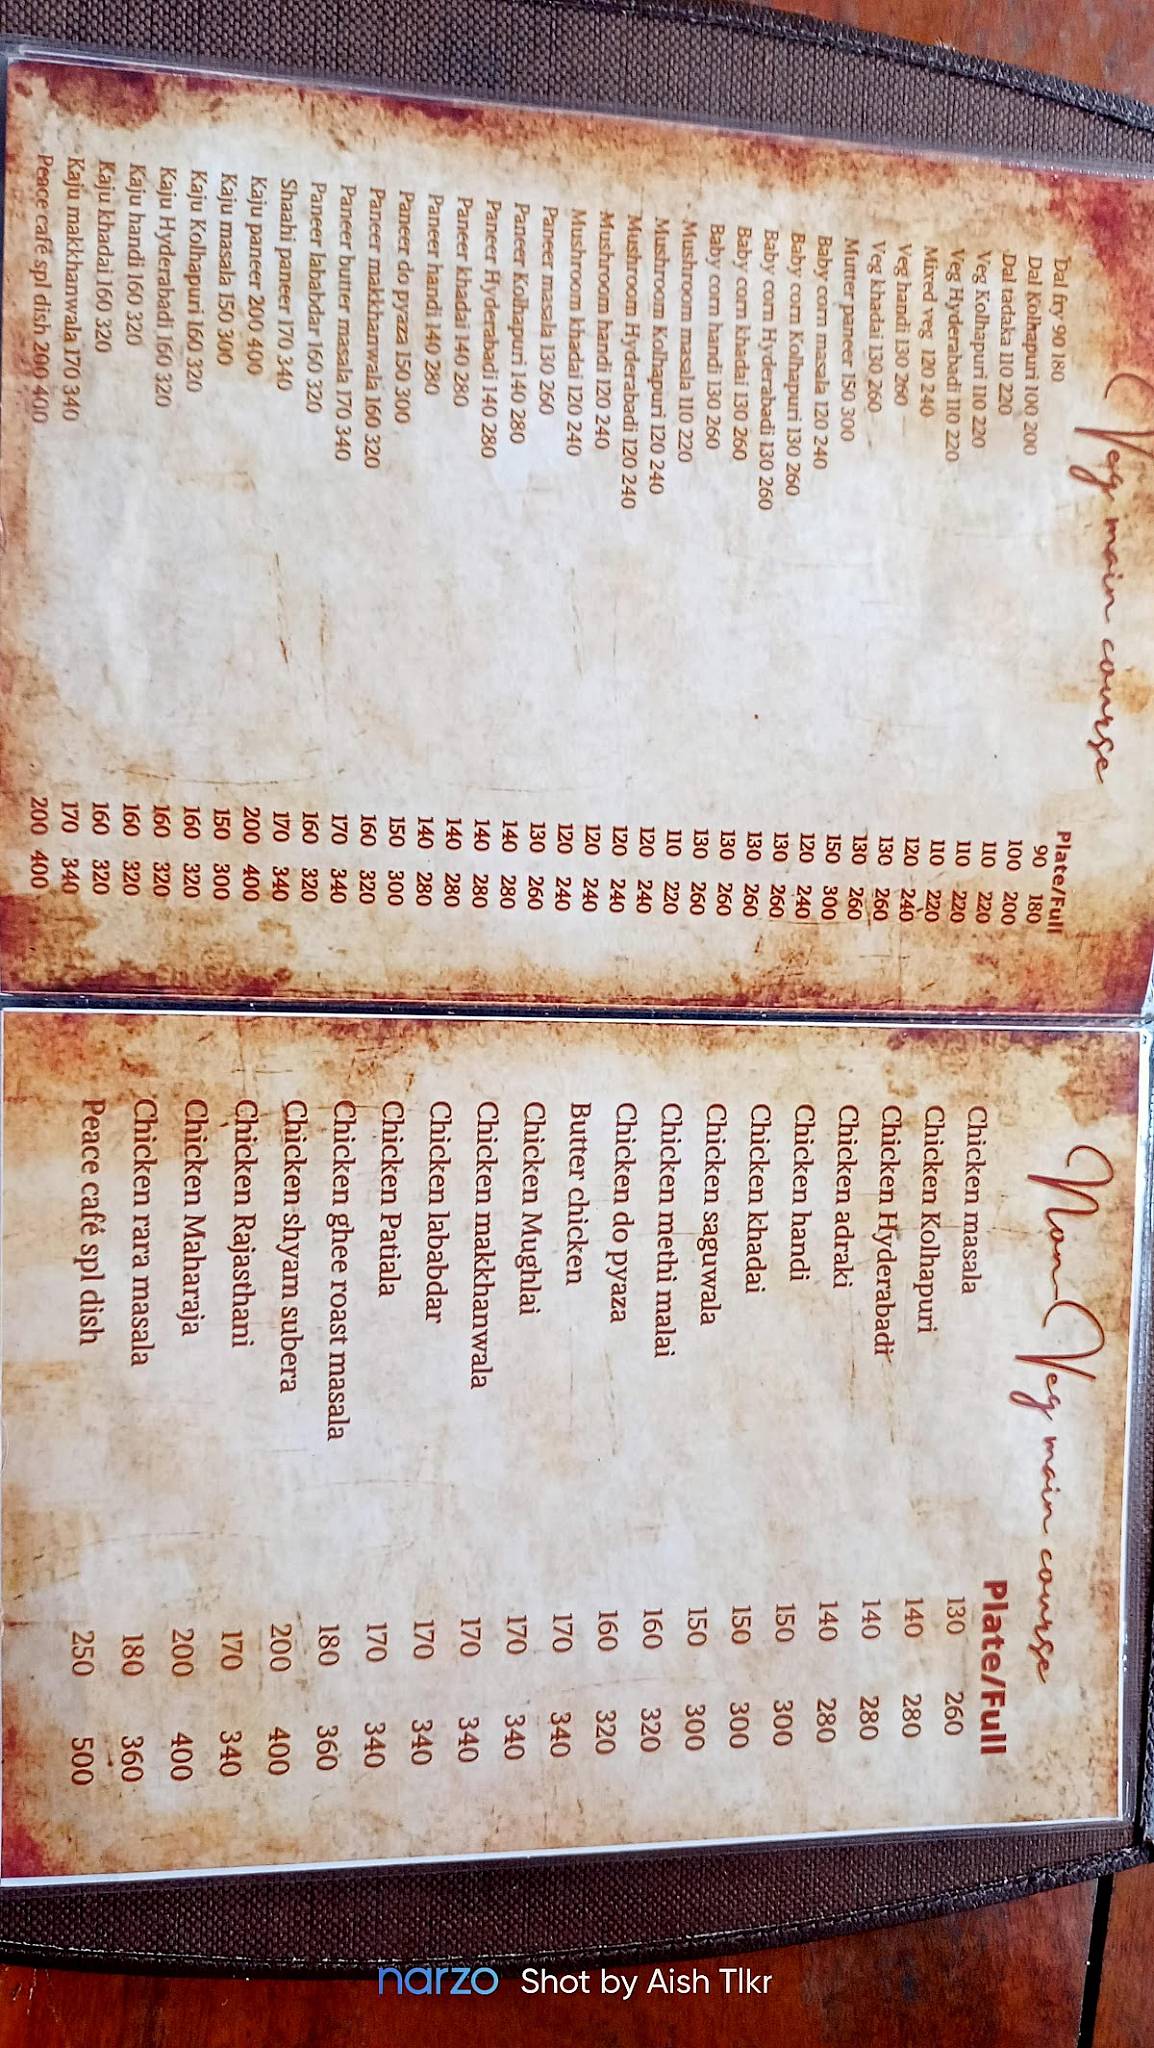 Veg main course
Plate/Full
Dal fry 90 180 90 180
Dal Kolhapuri 100 200 100 200
Dal tadaka 110 220 110 220
Veg Kolhapuri 110 220 110 220
Veg Hyderabadi 110 220 110 220
Mixed veg 120 240 120 240
Veg handi 130 260 130 260
Veg khadai 130 260 130 260
Mutter paneer 150 300 150 300
Baby corn masala 120 240 120 240
Baby corn Kolhapuri 130 260 130 260
Baby corn Hyderabadi 130 260 130 260
Baby corn khadai 130 260 130 260
Baby corn handi 130 260 130 260
Mushroom masala 110 220 110 220
Mushroom Kolhapuri 120 240 120 240
Mushroom Hyderabadi 120 240 120 240
Mushroom handi 120 240 120 240
Mushroom khadai 120 240 120 240
Paneer masala 130 260 130 260
Paneer Kolhapuri 140 280 140 280
Paneer Hyderabadi 140 280 140 280
Paneer khadai 140 280 140 280
Paneer handi 140 280 140 280
Paneer do pyaza 150 300 150 300
Paneer makhanwala 160 320 160 320
Paneer butter masala 170 340 170 340
Paneer lababdar 160 320 160 320
Shaahi paneer 170 340 170 340
Kaju paneer 200 400 200 400
Kaju masala 150 300 150 300
Kaju Kolhapuri 160 320 160 320
Kaju Hyderabadi 160 320 160 320
Kaju handi 160 320 160 320
Kaju khadai 160 320 160 320
Kaju makkhanwala 170 340 170 340
Peace café spl dish 200 400 200 400
Non Veg main course
Plate/Full
Chicken masala 130 260
Chicken Kolhapuri 140 280
Chicken Hyderabadi 140 280
Chicken adraki 140 280
Chicken handi 150 300
Chicken khadai 150 300
Chicken saguwala 150 300
Chicken methi malai 160 320
Chicken do pyaza 160 320
Butter chicken 170 340
Chicken Mughlai 170 340
Chicken makkhanwala 170 340
Chicken lababdar 170 340
Chicken Patiala 170 340
Chicken ghee roast masala 180 360
Chicken shyam subera 200 400
Chicken Rajasthani 170 340
Chicken Maharaja 200 400
Chicken rara masala 180 360
Peace café spl dish 250 500
narzo Shot by Aish Tlkr